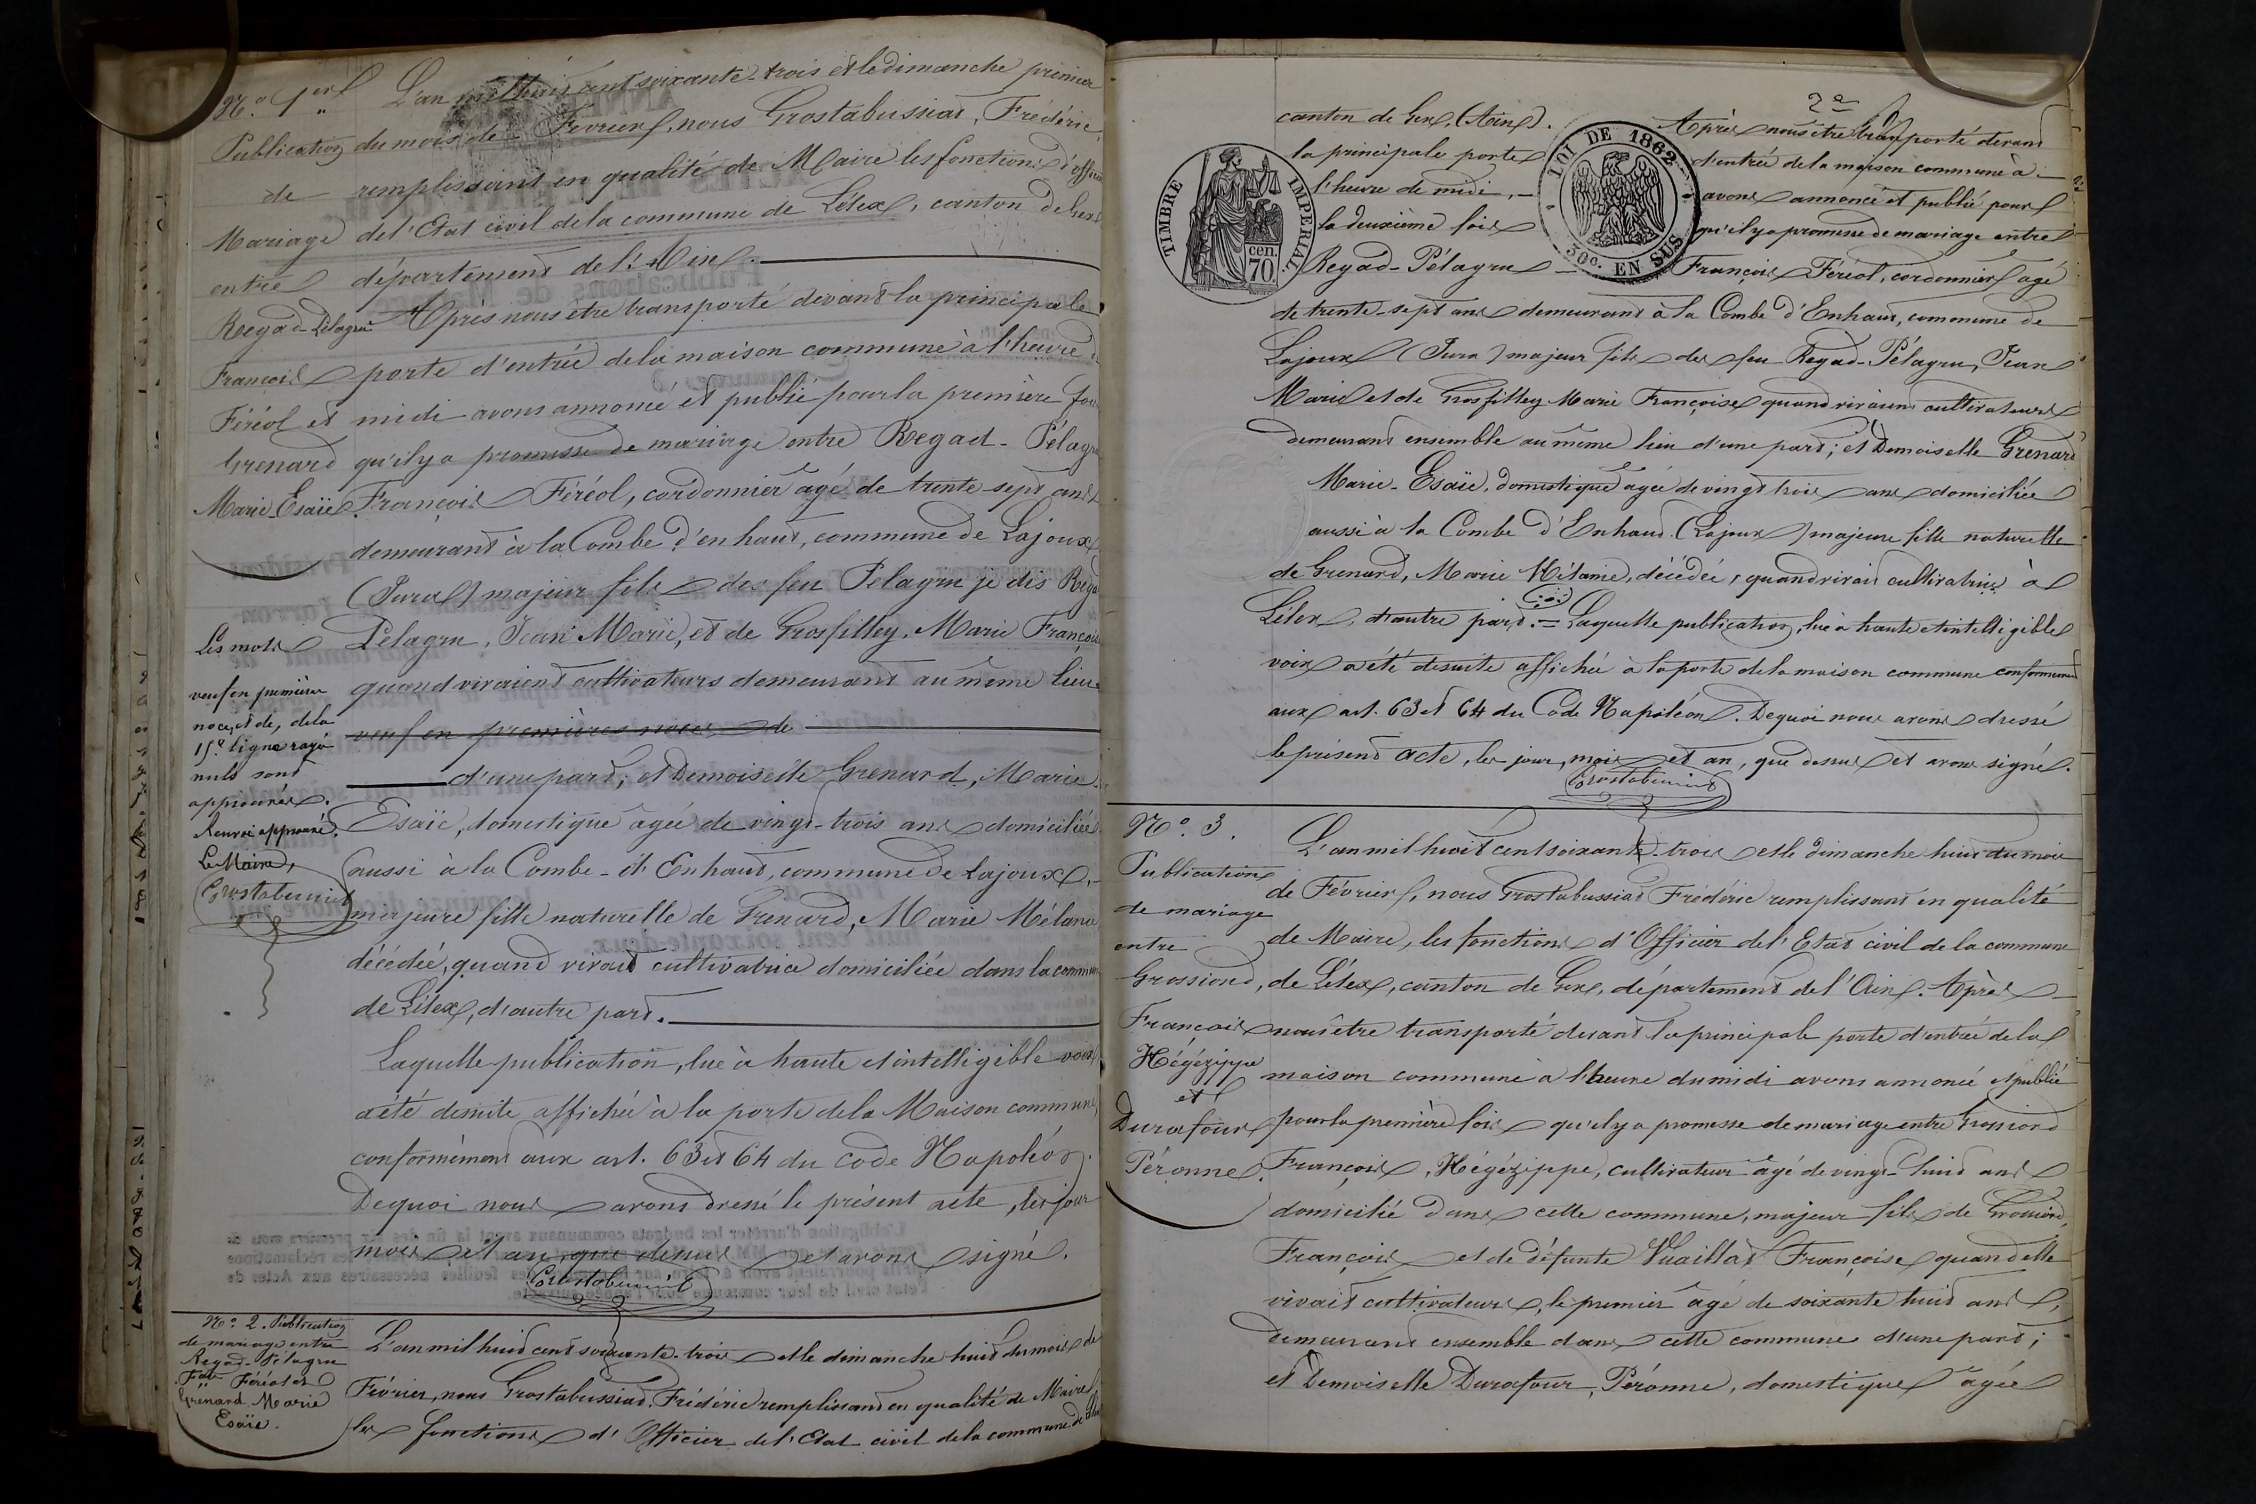 N.o 1er
Publication
de
Mariage
entre
Regad-Pélagru
François
Féréol et
Grenard
Marie Esaïe
L'an mil huit cent soixante-trois et le dimanche premier
du mois de Février, nous Grostabussiat, Frédéric,
remplissant en qualité de Maire les fonctions d'officier
de l'Etat civil de la commune de Lélex, canton de Gex
département de l'Ain.
Après nous être transporté devant la principale
porte d'entrée de la maison commune à l'heure de
midi avons annoncé et publié pour la première fois
qu'il y a promesse de mariage entre Regad-Pélagru
François Féréol, cordonnier âgé de trente sept ans
demeurant à la Combe d'en haut, commune de Lajoux
(Jura) majeur fils de feu Pelagru je dis Regad
Pelagru, Jean Marie, et de Grosfilley, Marie Françoise
quand vivaient cultivateurs demeurant au même lieu
veuf en premières noces de
d'une part; et Demoiselle Grenard, Marie
Esaïe, domestique âgée de vingt-trois ans domiciliée
aussi à la Combe-d'Enhaut, commune de Lajoux,
majeure fille naturelle de Grenard, Marie Mélanie
décédée, quand vivait cultivatrice domiciliée dans la commune
de Lélex, d'autre part.
Laquelle publication, lue à haute et intelligible voix
a été desuite affichée à la porte de la Maison commune,
conformément aux art. 63 et 64 du Code Napoléon.
Dequoi nous avons dressé le présent acte, les jour
mois et an que dessus et avons signé.
Grostabussiat
Les mots
veuf en première
noce, et de, de la
15e ligne rayé
nuls sont
approuvés.
Renvoi approuvé.
Le Maire,
Grostabussiat
No. 2. Publication
de mariage entre
Regad-Pélagru
Fois Féréol et
Grenard Marie
Esaïe.
L'an mil huit cent soixante-trois et le dimanche huit du mois de
Février, nous Grostabussiat, Frédéric remplissant en qualité de Maire
les fonctions d'Officier de l'Etat civil de la commune de Lélex
2e
TIMBRE IMPERIAL
cen. 70
LOI DE 1862
30c. EN SUS
canton de Gex, (Ain). Après nous être transporté devant
la principale porte d'entrée de la maison commune à
l'heure de midi, avons annoncé et publié pour
la deuxième fois qu'il y a promesse de mariage entre
Regad-Pélagru François Féréol, cordonnier âgé
de trente-sept ans demeurant à la Combe d'Enhaut, commune de
Lajoux (Jura) majeur fils de feu Regad-Pélagru, Jean
Marie et de Grosfilley Marie Françoise quand vivaient cultivateurs
demeurant ensemble au même lieu d'une part; et Demoiselle Grenard
Marie-Esaïe, domestique âgée de vingt trois ans domiciliée
aussi à la Combe d'Enhaut (Lajoux) majeure fille naturelle
de Grenard, Marie Mélanie, décédée, quand vivait cultivatrice à
Lélex, d'autre part. = Laquelle publication, lue à haute et intelligible
voix a été desuite affichée à la porte de la maison commune conformément
aux art. 63 et 64 du Code Napoléon. Dequoi nous avons dressé
le présent acte, les jour, mois et an, que dessus et avons signé.
Grostabussiat
No. 3.
Publication
de mariage
entre
Grossiord,
François
Hégézippe
et
Durafour
Péronne.
L'an mil huit cent soixante-trois et le dimanche huit du mois
de Février, nous Grostabussiat Frédéric remplissant en qualité
de Maire, les fonctions d'Officier de l'Etat civil de la commune
de Lélex, canton de Gex, département de l'Ain. Après
nous être transporté devant la principale porte d'entrée de la
maison commune à l'heure du midi avons annoncé et publié
pour la première fois qu'il y a promesse de mariage entre Grossiord
François, Hégézippe, cultivateur âgé de vingt-huit ans
domicilié dans cette commune, majeur fils de Grossiord,
François et de défunte Vuaillat Françoise quand elle
vivait cultivateurs, le premier âgé de soixante huit ans,
demeurant ensemble dans cette commune d'une part;
et Demoiselle Durafour, Péronne, domestique âgée